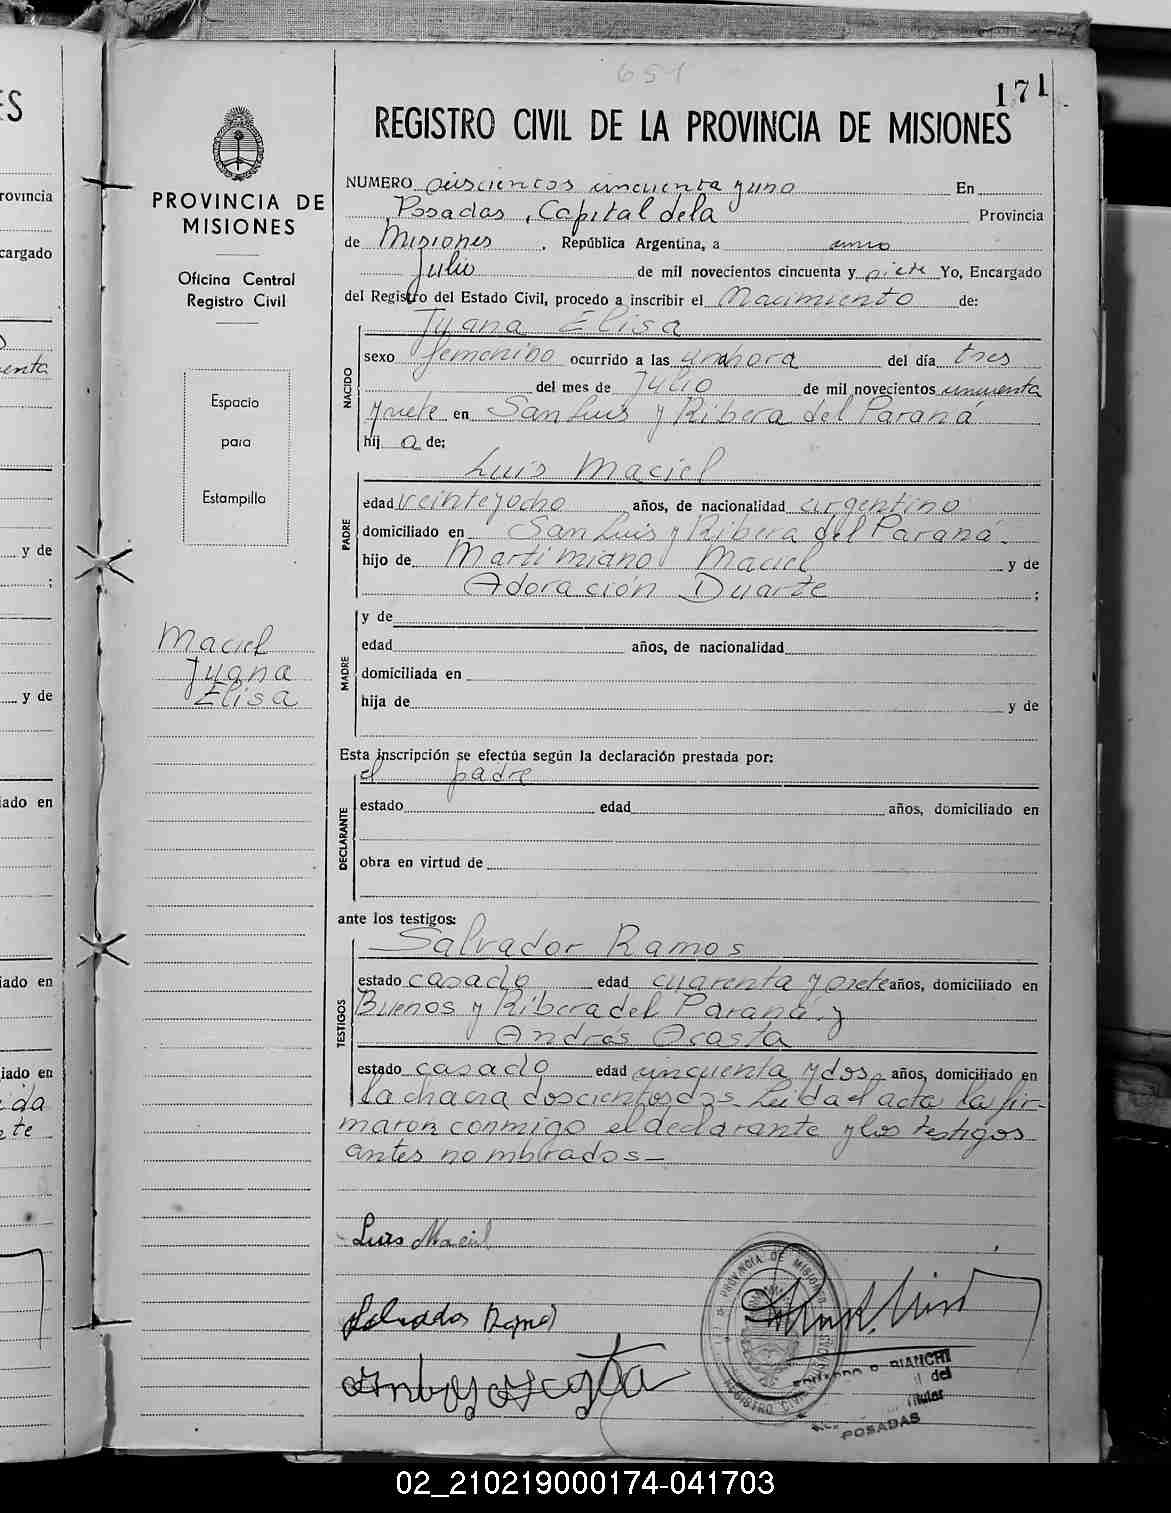 651
171
REGISTRO CIVIL DE LA PROVINCIA DE MISIONES
PROVINCIA DE
MISIONES
Oficina Central
Registro Civil
Espacio
para
Estampilla
Maciel
Juana
Elisa
NUMERO seiscientos cincuenta y uno En
Posadas, Capital de la Provincia
de Misiones. República Argentina, a
Julio de mil novecientos cincuenta y siete Yo, Encargado
del Registro del Estado Civil, procedo a inscribir el Nacimiento de:
NACIDO
Juana Elisa
sexo femenino ocurrido a las una hora del día tres
del mes de Julio de mil novecientos cincuenta
y siete en San Luis y Ribera del Paraná
hij a de:
PADRE
Luis Maciel
edad veinte y ocho años, de nacionalidad argentino
domiciliado en San Luis y Ribera del Paraná.
hijo de Martimiano Maciel y de
Adoración Duarte ;
MADRE
y de
edad años, de nacionalidad
domiciliada en
hija de y de
Esta inscripción se efectúa según la declaración prestada por:
el padre
DECLARANTE
estado edad años, domiciliado en
obra en virtud de
ante los testigos:
TESTIGOS
Salvador Ramos
estado casado edad cuarenta y siete años, domiciliado en
Buenos y Ribera del Paraná y
Andrés Acosta
estado casado edad cincuenta y dos años, domiciliado en
la chacra doscientos dos. Leida el acta la fir-
maron conmigo el declarante y los testigos
antes nombrados—
Luis Maciel
Salvador Ramos
PROVINCIA DE MISIONES
REGISTRO CIVIL
BIANCHI
del
Titular
POSADAS
ES
rovincia
cargado
enta
y de
;
y de
iado en
iado en
iado en
02_210219000174-041703